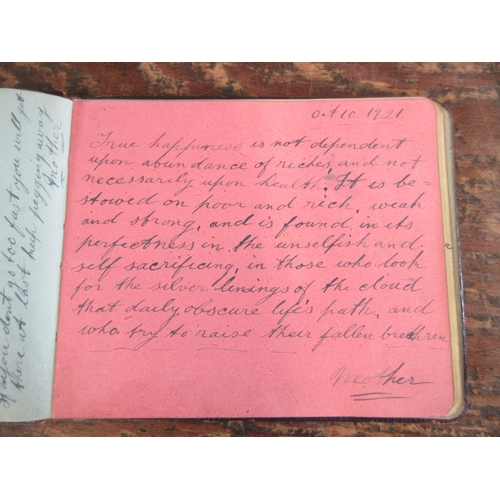 If you dont go too fast you will get
there at last keep pegging away
Mother
Oct 10. 1921
True happiness is not dependent
upon abundance of riches, and not
necessarily upon health. It is be=
stowed on poor and rich, weak
and strong, and is found in its
perfectness in the unselfish and
self sacrificing, in those who look
for the silver linings of the cloud
that daily obscure life's path, and
who try to raise their fallen brethren
Mother